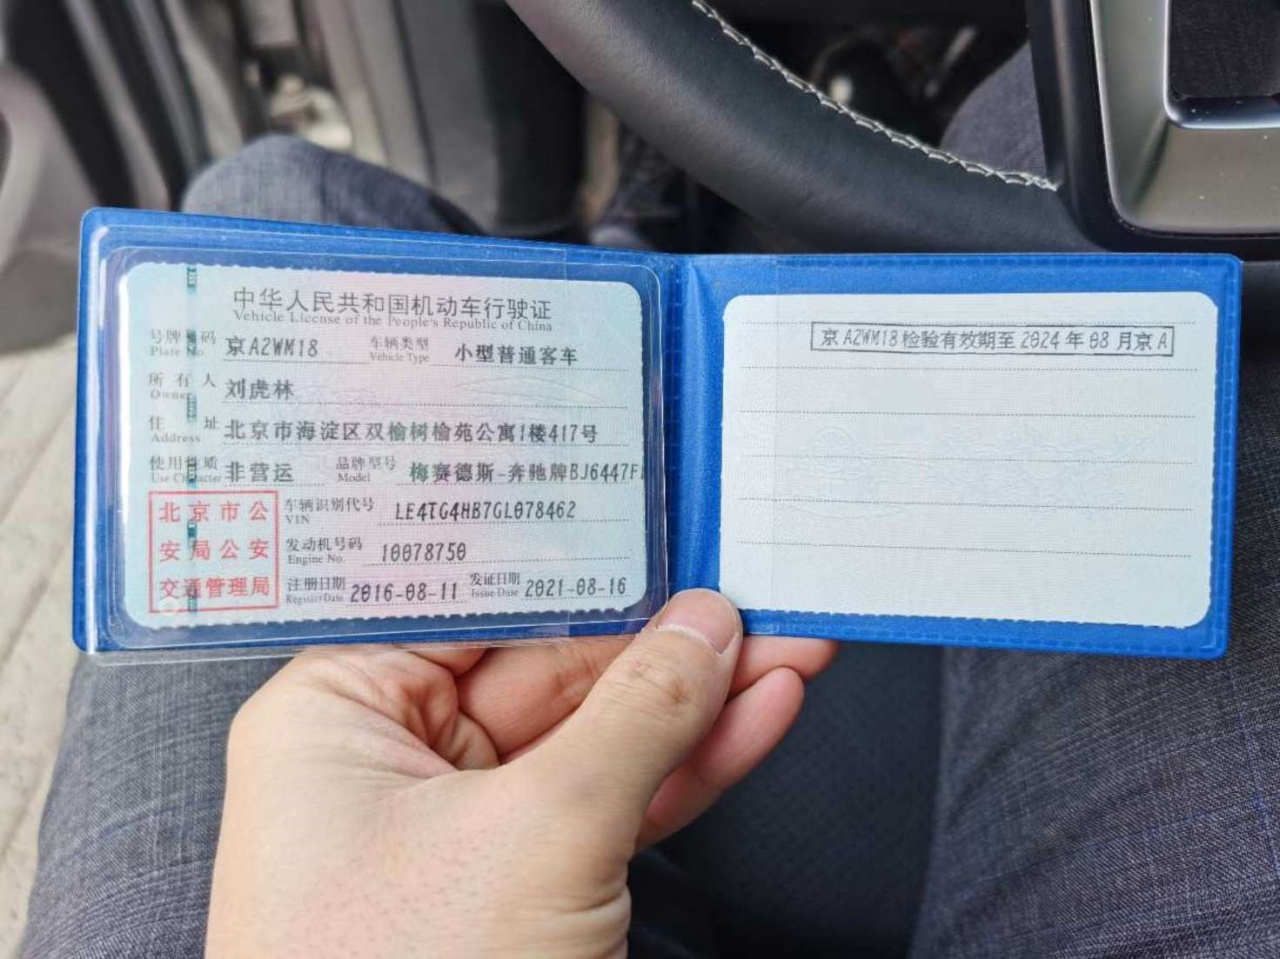 中华人民共和国机动车行驶证
Vehicle License of the People's Republic of China
号牌号码 京A2WM18 车辆类型 小型普通客车
Plate No. Vehicle Type
所有人 刘虎林
Owner
住址 北京市海淀区双榆树榆苑公寓1楼417号
Address
使用性质 非营运 品牌型号 梅赛德斯-奔驰牌BJ6447F
Use Character Model
北京市公
安局公安
交通管理局
车辆识别代号 LE4TG4HB7GL078462
VIN
发动机号码 10078750
Engine No.
注册日期 2016-08-11 发证日期 2021-08-16
Register Date Issue Date
京A2WM18检验有效期至2024年08月京A